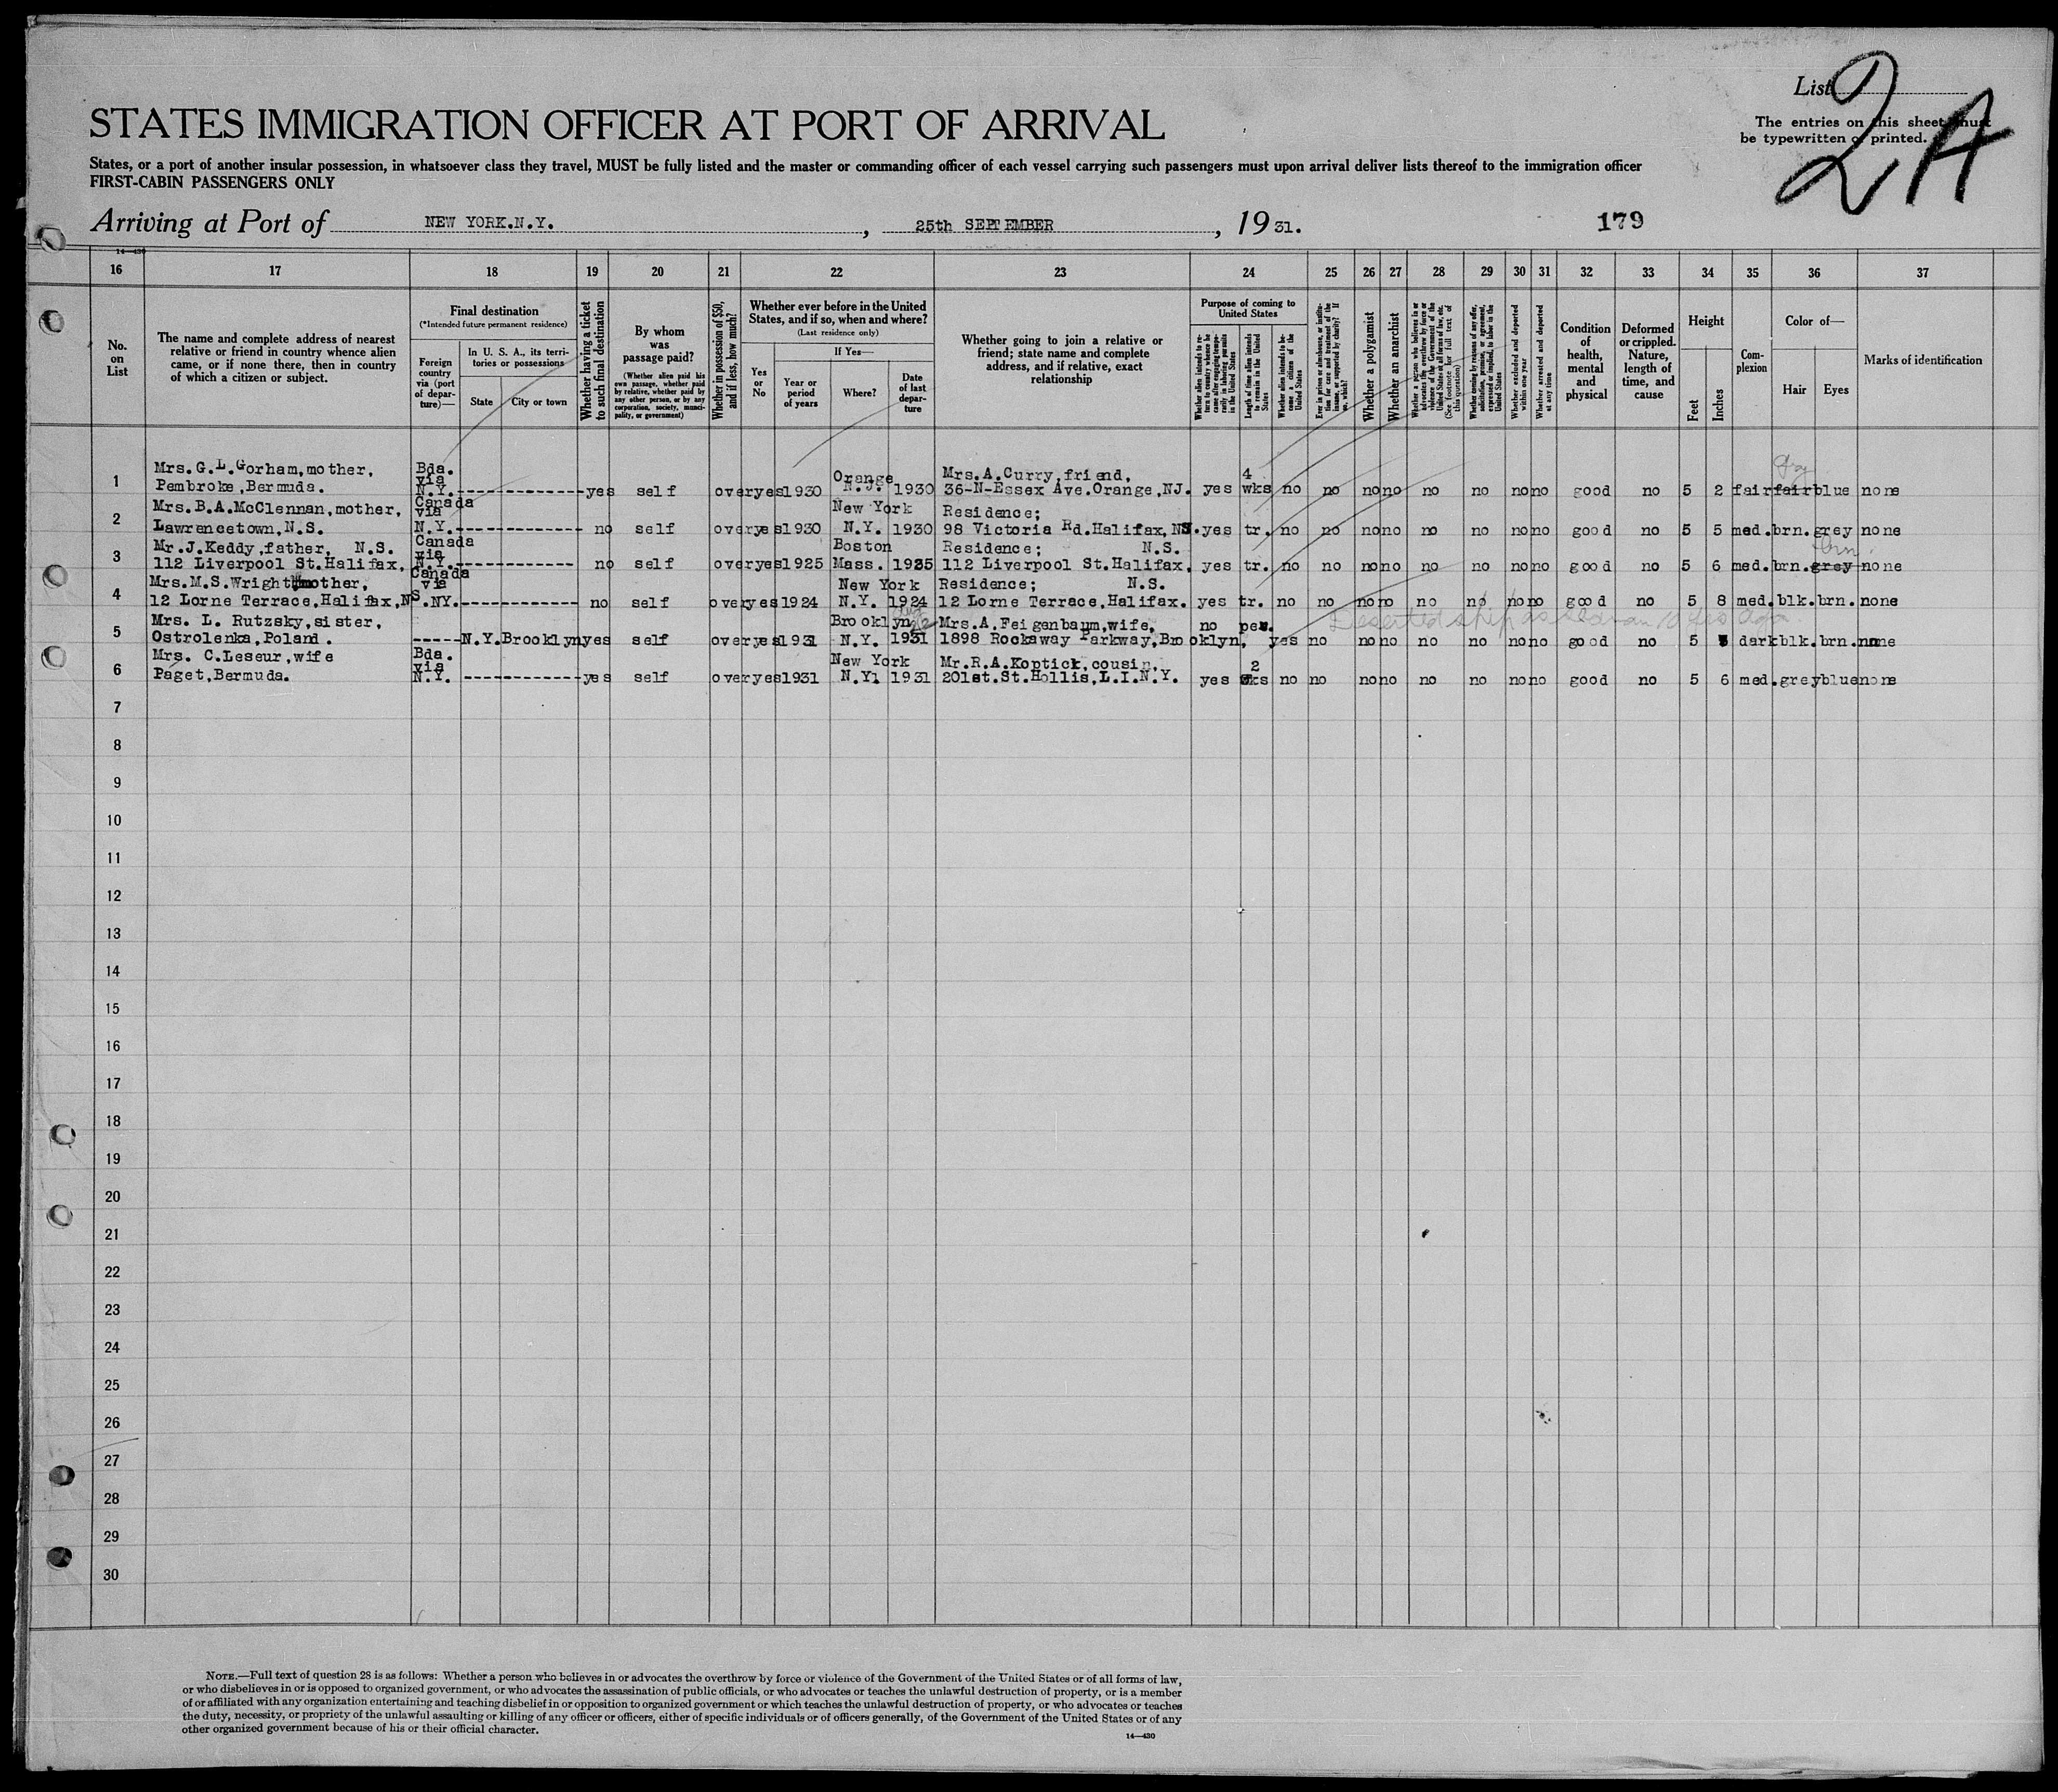 List 2A
The entries on this sheet must
be typewritten or printed.
STATES IMMIGRATION OFFICER AT PORT OF ARRIVAL
States, or a port of another insular possession, in whatsoever class they travel, MUST be fully listed and the master or commanding officer of each vessel carrying such passengers must upon arrival deliver lists thereof to the immigration officer
FIRST-CABIN PASSENGERS ONLY
Arriving at Port of NEW YORK.N.Y. , 25th SEPTEMBER , 19 31.
179
14—430
16 17 18 19 20 21 22 23 24 25 26 27 28 29 30 31 32 33 34 35 36 37
No.
on
List
The name and complete address of nearest
relative or friend in country whence alien
came, or if none there, then in country
of which a citizen or subject.
Final destination
(*Intended future permanent residence)
Foreign
country
via (port
of depar-
ture)—
In U. S. A., its terri-
tories or possessions
State
City or town
Whether having a ticket
to such final destination
By whom
was
passage paid?
(Whether alien paid his
own passage, whether paid
by relative, whether paid by
any other person, or by any
corporation, society, munici-
pality, or government)
Whether in possession of $50,
and if less, how much?
Whether ever before in the United
States, and if so, when and where?
(Last residence only)
Yes
or
No
If Yes—
Year or
period
of years
Where?
Date
of last
depar-
ture
Whether going to join a relative or
friend; state name and complete
address, and if relative, exact
relationship
Purpose of coming to
United States
Whether alien intends to re-
turn to country whence he
came after engaging tempo-
rarily in laboring pursuits
in the United States
Length of time alien intends
to remain in the United
States
Whether alien intends to be-
come a citizen of the
United States
Ever in prison or almshouse, or institu-
tion for care and treatment of the
insane, or supported by charity? If
so, which?
Whether a polygamist
Whether an anarchist
Whether a person who believes in or
advocates the overthrow by force or
violence of the Government of the
United States or all forms of law, etc.
(See footnote for full text of
this question)
Whether coming by reason of any offer,
solicitation, promise, or agreement,
expressed or implied, to labor in the
United States
Whether excluded and deported
within one year
Whether arrested and deported
at any time
Condition
of
health,
mental
and
physical
Deformed
or crippled.
Nature,
length of
time, and
cause
Height
Feet
Inches
Com-
plexion
Color of—
Hair
Eyes
Marks of identification
Mrs.G.L.Gorham,mother, Bda. via Orange Mrs.A.Curry,friend, 4
1 Pembroke,Bermuda. N.Y.------------yes self over yes 1930 N.J. 1930 36-N-Essex Ave.Orange,NJ. yes wks no no no no no no no no good no 5 2 fair fair blue none
Mrs.B.A.McClennan,mother, Canada via New York Residence;
2 Lawrencetown,N.S. N.Y.------------ no self over yes 1930 N.Y. 1930 98 Victoria Rd.Halifax,NS. yes tr. no no no no no no no no good no 5 5 med. brn. grey none
Mr.J.Keddy,father, N.S. Canada via Boston Residence; N.S. brn.
3 112 Liverpool St.Halifax, N.Y.------------ no self over yes 1925 Mass. 1925 112 Liverpool St.Halifax, yes tr. no no no no no no no no good no 5 6 med. brn. grey none
Mrs.M.S.Wright mother, Canada via New York Residence; N.S.
4 12 Lorne Terrace,Halifax,NS. NY.------------ no self over yes 1924 N.Y. 1924 12 Lorne Terrace,Halifax. yes tr. no no no no no no no no good no 5 8 med. blk. brn. none
Mrs. L. Rutzsky,sister, Brooklyn Mrs.A.Feigenbaum,wife, no per. Deserted ship as seaman
5 Ostrolenka,Poland. -----N.Y. Brooklyn yes self over yes 1931 N.Y. 1931 1898 Rockaway Parkway,Brooklyn, yes no no no no no no no good no 5 dark blk. brn. none
Mrs. C.Leseur,wife Bda. via New York Mr.R.A.Koptick,cousin, 2
6 Paget,Bermuda. N.Y. ------------yes self over yes 1931 N.Y. 1931 201st.St.Hollis,L.I.N.Y. yes wks no no no no no no no no good no 5 6 med. grey blue none
7
8
9
10
11
12
13
14
15
16
17
18
19
20
21
22
23
24
25
26
27
28
29
30
NOTE.—Full text of question 28 is as follows: Whether a person who believes in or advocates the overthrow by force or violence of the Government of the United States or of all forms of law,
or who disbelieves in or is opposed to organized government, or who advocates the assassination of public officials, or who advocates or teaches the unlawful destruction of property, or is a member
of or affiliated with any organization entertaining and teaching disbelief in or opposition to organized government or which teaches the unlawful destruction of property, or who advocates or teaches
the duty, necessity, or propriety of the unlawful assaulting or killing of any officer or officers, either of specific individuals or of officers generally, of the Government of the United States or of any
other organized government because of his or their official character.
14—430